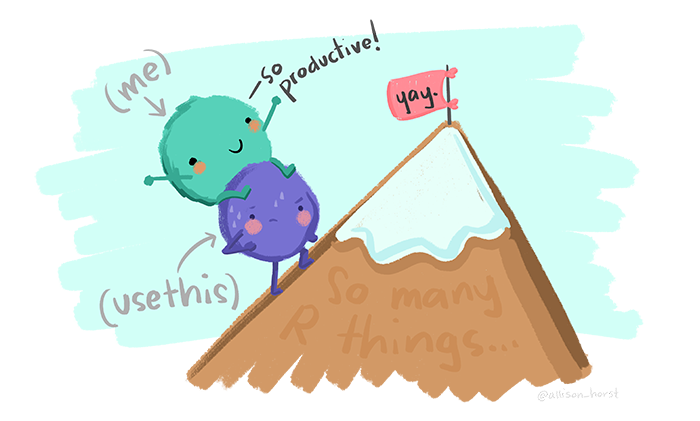 (me)
—so
productive!
yay.
(usethis)
So many
R things...
@allison_horst